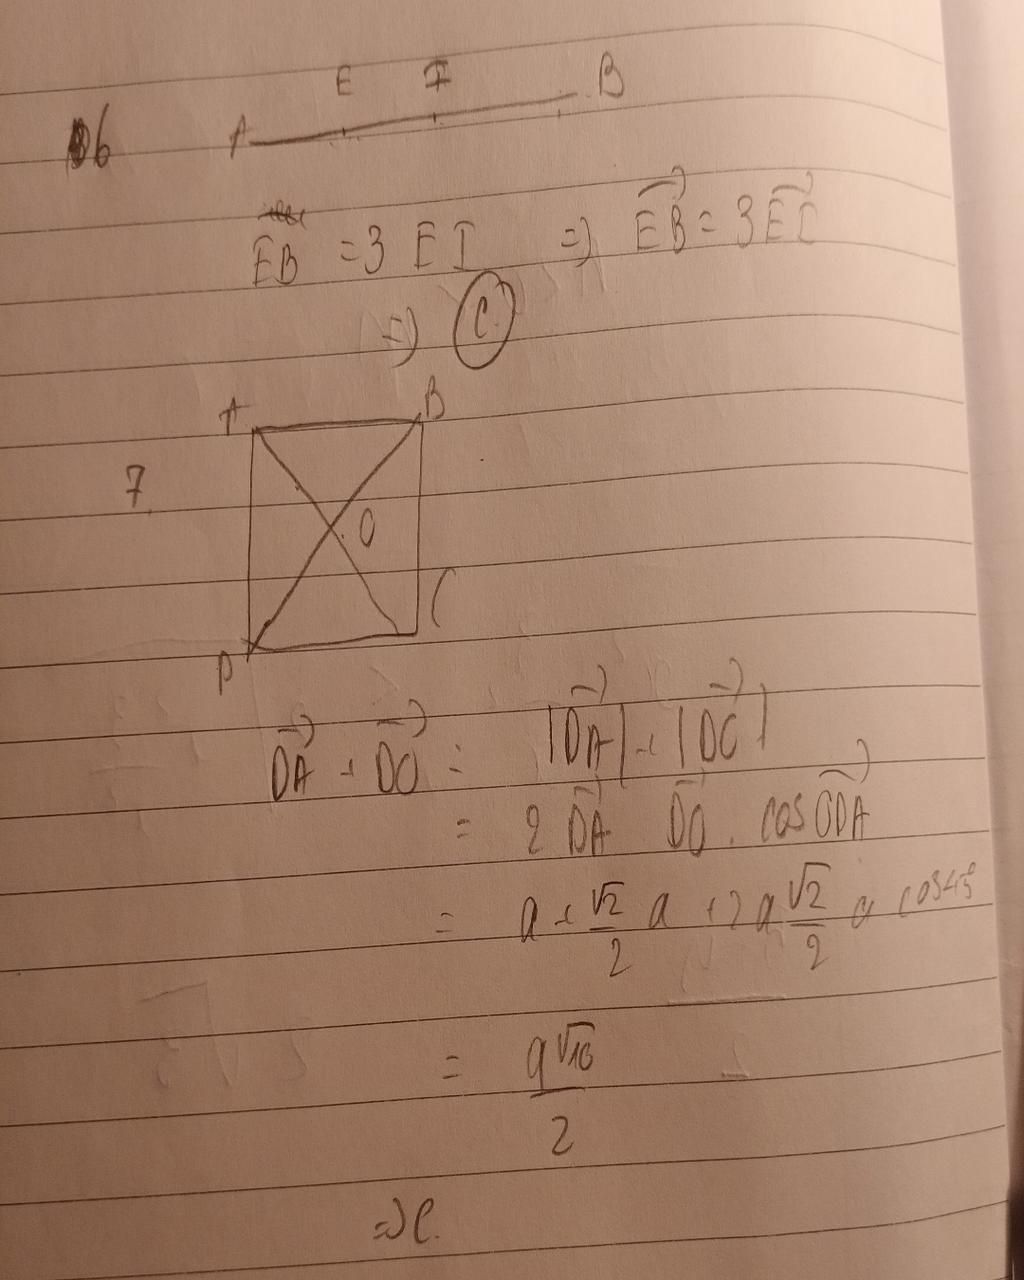 E I B
06 A
EB = 3 EI => \vec{EB} = 3\vec{EI}
=> C.
A B
7.
O
C
D
\vec{DA} + \vec{DO} = |\vec{DA}| + |\vec{DO}|
= 2 \vec{DA} \vec{DO} . cos \vec{ODA}
= a + \frac{\sqrt{2}}{2} a + 2 a \frac{\sqrt{2}}{2} a cos45°
= \frac{a\sqrt{10}}{2}
=> C.